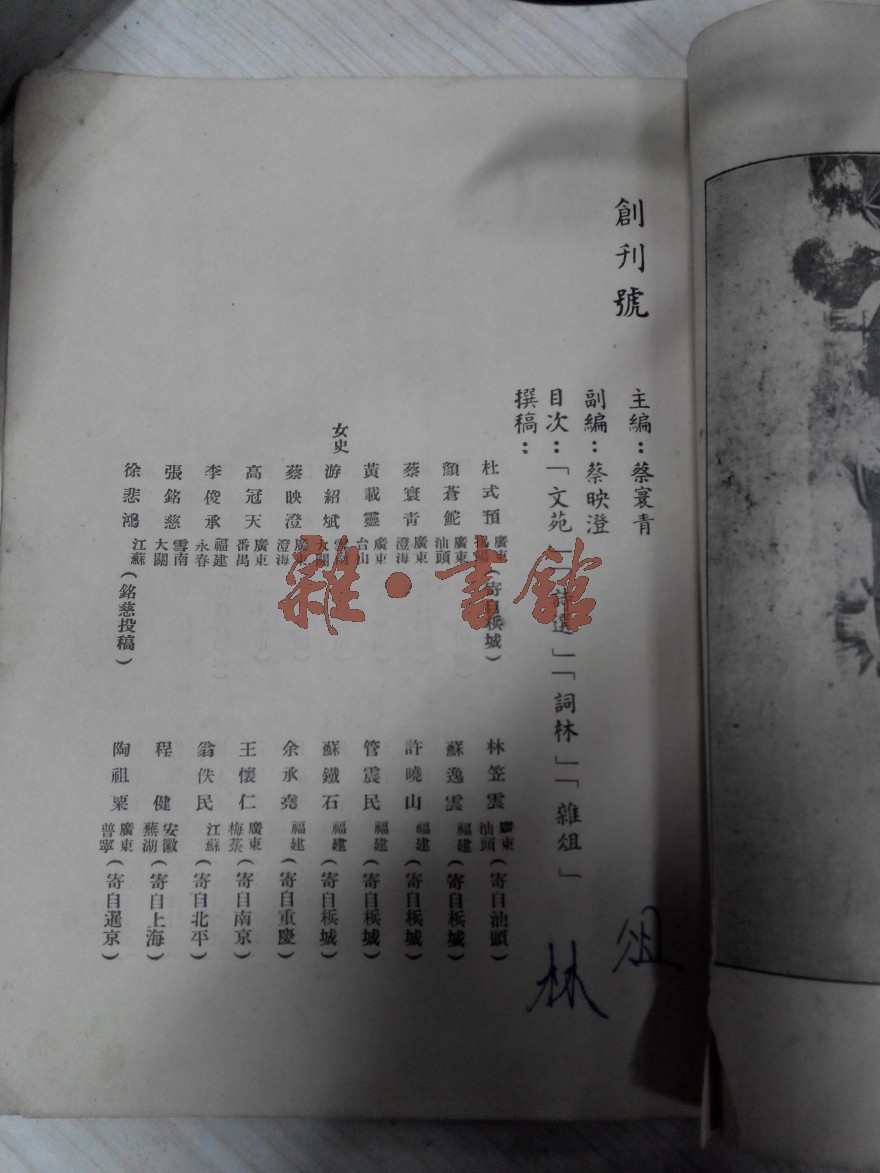 創刊號
主編：蔡寰青
副編：蔡映澄
目次：「文苑」「詩選」「詞林」「雜俎」
撰稿：
杜式預 廣東（寄自檳城）
顏蒼鮀 廣東汕頭
蔡寰青 廣東澄海
黃載靈 廣東台山
女史 游紹斌 雲南大關
蔡映澄 廣東澄海
高冠天 廣東番禺
李俊承 福建永春
張銘慈 雲南大關
徐悲鴻 江蘇（銘慈投稿）
林笠雲 廣東汕頭（寄自汕頭）
蘇逸雲 福建（寄自檳城）
許曉山 福建（寄自檳城）
管震民 福建（寄自檳城）
蘇鐵石 福建（寄自檳城）
余承堯 福建（寄自重慶）
王懷仁 廣東梅菉（寄自南京）
翁佚民 江蘇（寄自北平）
程健 安徽蕪湖（寄自上海）
陶祖粟 廣東普寧（寄自暹京）
俎
林
雜·書館